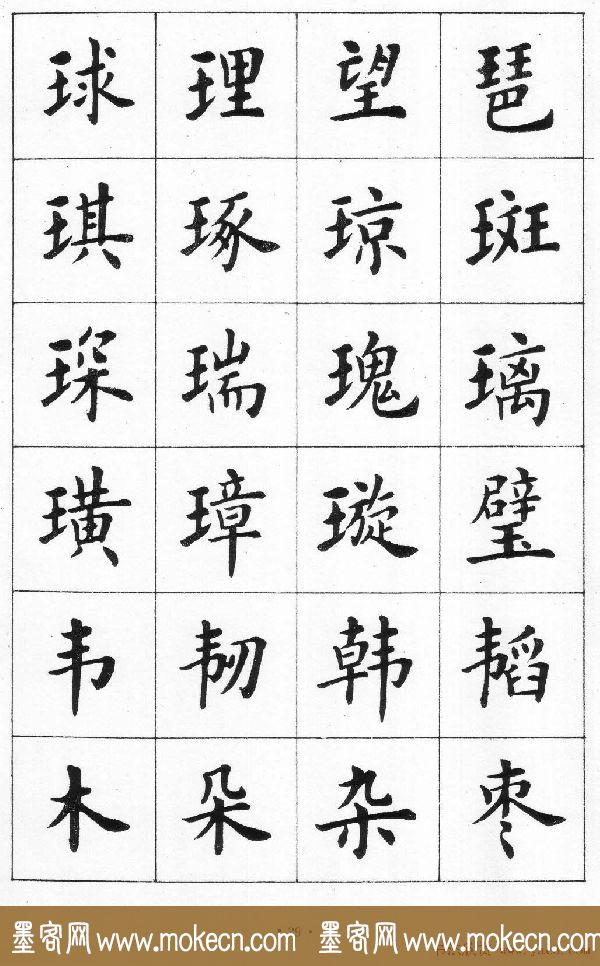 球 理 望 琶
琪 琢 琼 斑
琛 瑞 瑰 璃
璜 璋 璇 璧
韦 韧 韩 韬
木 朵 杂 枣
墨客网 www.mokecn.com 墨客网 www.mokecn.com